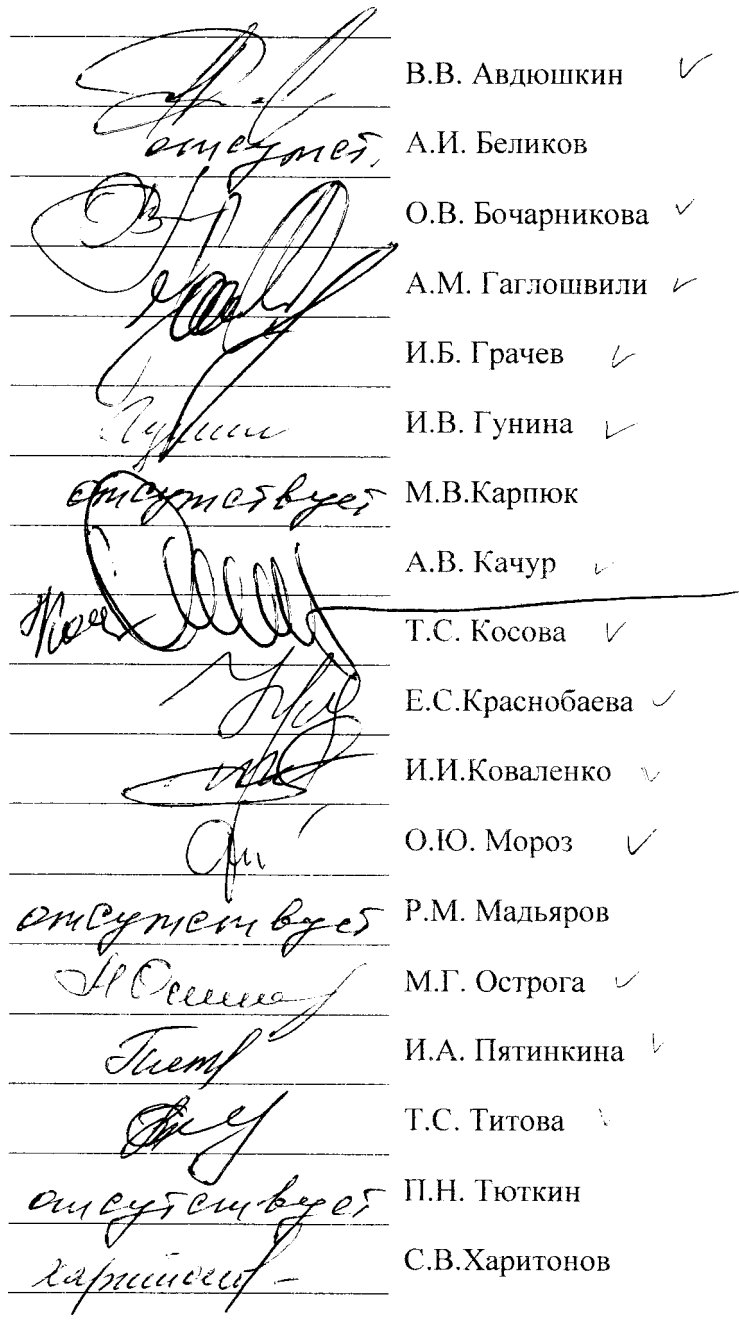 В.В. Авдюшкин
отсутст. А.И. Беликов
О.В. Бочарникова
А.М. Гаглошвили
И.Б. Грачев
И.В. Гунина
отсутствует М.В.Карпюк
А.В. Качур
Т.С. Косова
Е.С.Краснобаева
И.И.Коваленко
О.Ю. Мороз
отсутствует Р.М. Мадьяров
М.Г. Острога
И.А. Пятинкина
Т.С. Титова
отсутствует П.Н. Тюткин
С.В.Харитонов